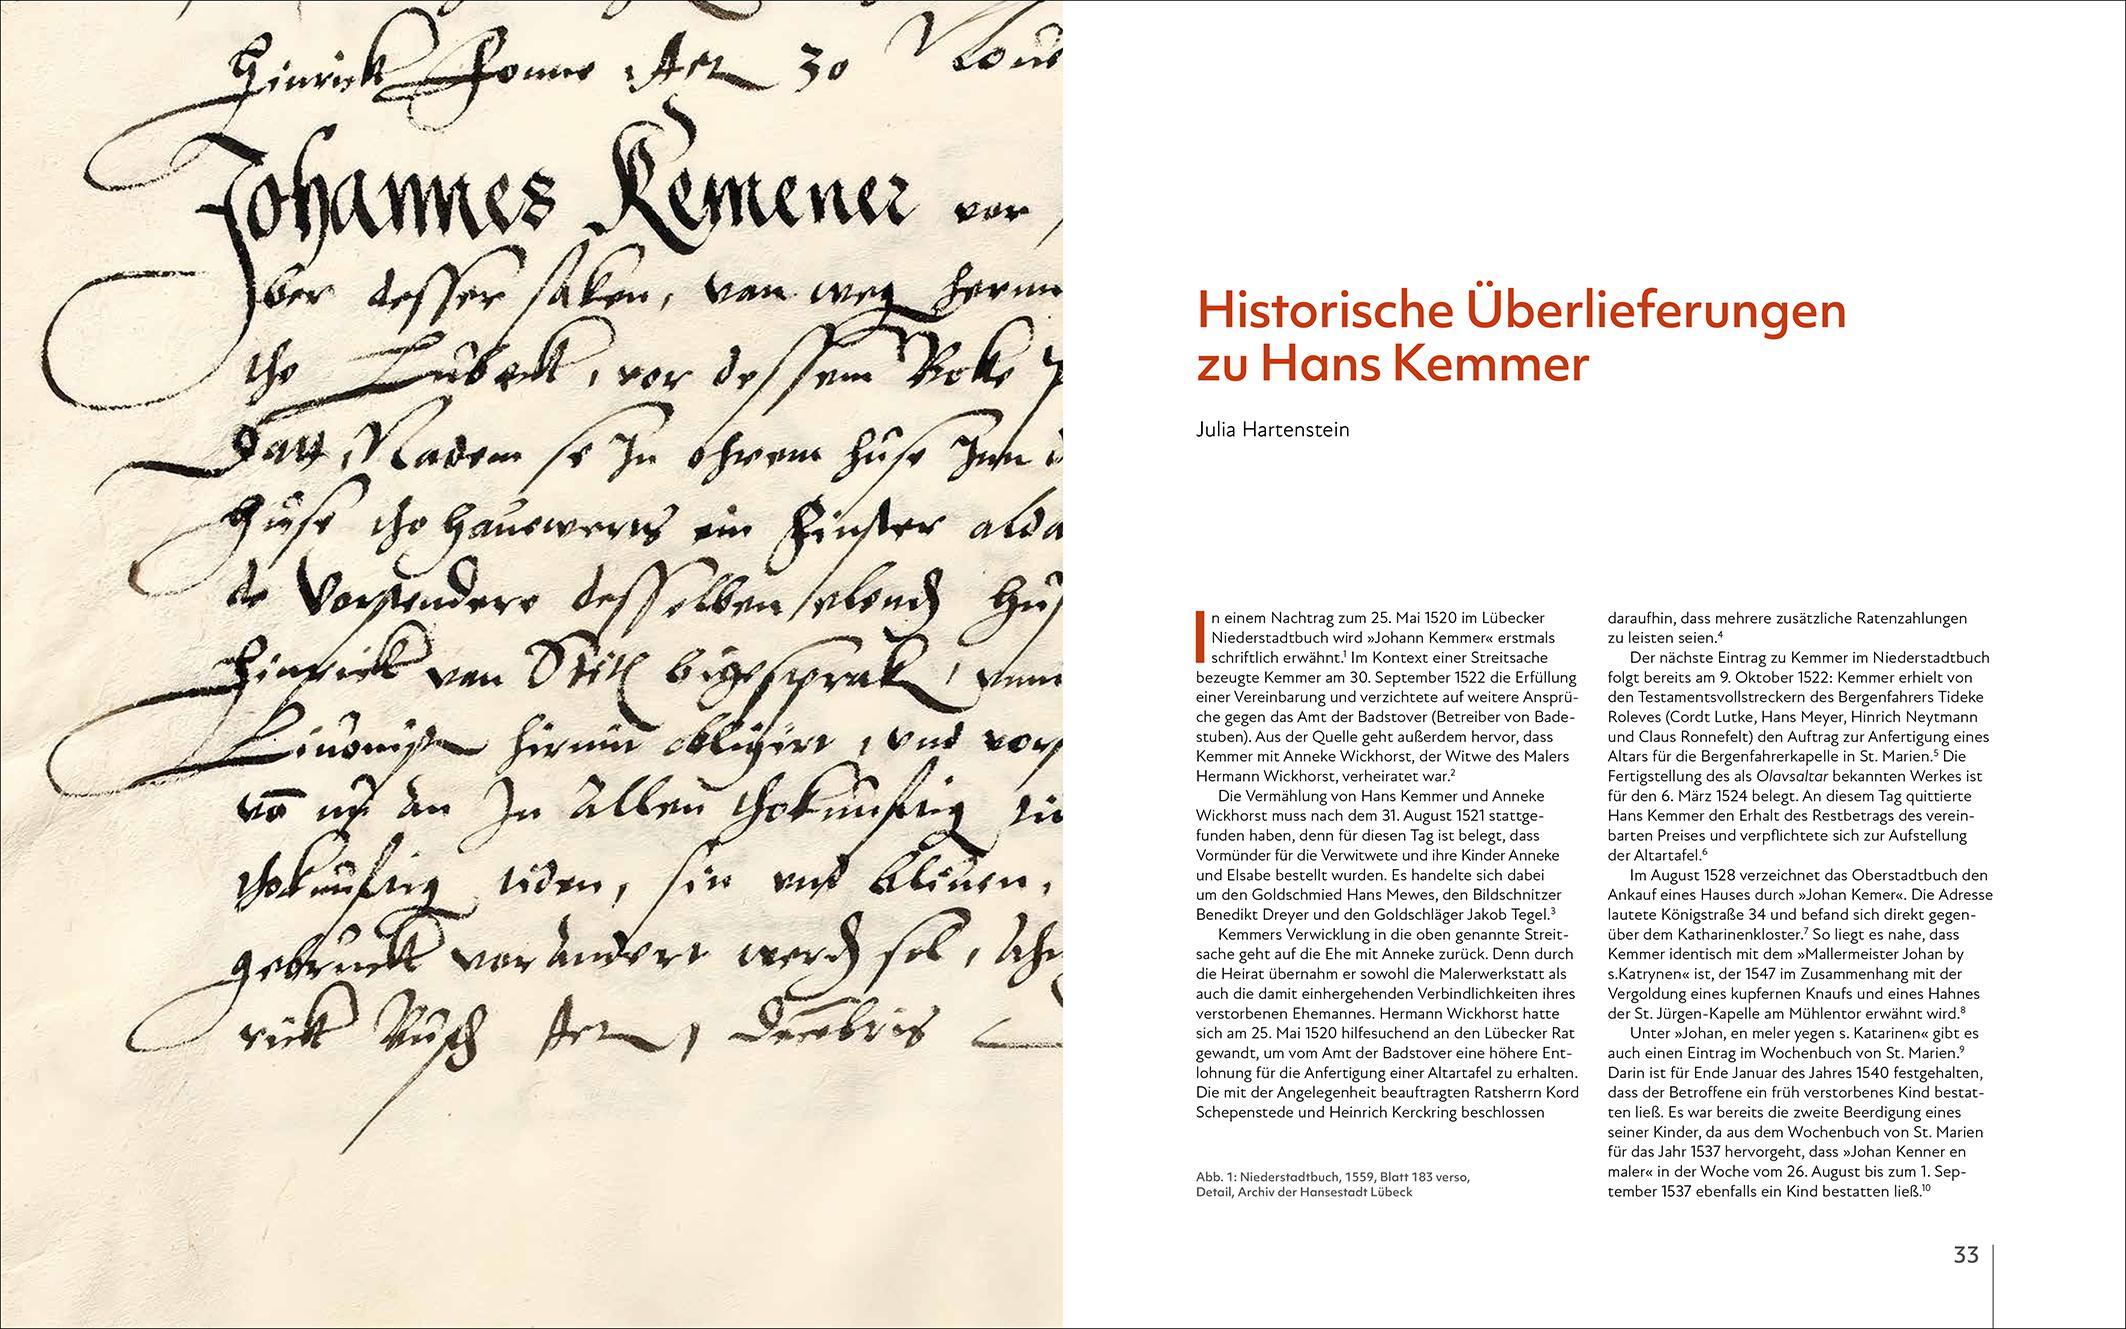 Hinrick
30
Johannes Kemener vor
ber desser saken, van weg
tho Lubeck, vor dessem Boke
Datt, Nadem se In ohrem huse Inn
huse tho ein Finster alda
de desselben elend
Hinrick van Stiten bigesprak,
hirmit obligirt, und
an In Allen thokumftig
thokumftig tiden, sin und bliven,
vorandert werd sol,
rick Busch Decebris
Historische Überlieferungen
zu Hans Kemmer
Julia Hartenstein
In einem Nachtrag zum 25. Mai 1520 im Lübecker
Niederstadtbuch wird »Johann Kemmer« erstmals
schriftlich erwähnt.¹ Im Kontext einer Streitsache
bezeugte Kemmer am 30. September 1522 die Erfüllung
einer Vereinbarung und verzichtete auf weitere Ansprü-
che gegen das Amt der Badstover (Betreiber von Bade-
stuben). Aus der Quelle geht außerdem hervor, dass
Kemmer mit Anneke Wickhorst, der Witwe des Malers
Hermann Wickhorst, verheiratet war.²
Die Vermählung von Hans Kemmer und Anneke
Wickhorst muss nach dem 31. August 1521 stattge-
funden haben, denn für diesen Tag ist belegt, dass
Vormünder für die Verwitwete und ihre Kinder Anneke
und Elsabe bestellt wurden. Es handelte sich dabei
um den Goldschmied Hans Mewes, den Bildschnitzer
Benedikt Dreyer und den Goldschläger Jakob Tegel.³
Kemmers Verwicklung in die oben genannte Streit-
sache geht auf die Ehe mit Anneke zurück. Denn durch
die Heirat übernahm er sowohl die Malerwerkstatt als
auch die damit einhergehenden Verbindlichkeiten ihres
verstorbenen Ehemannes. Hermann Wickhorst hatte
sich am 25. Mai 1520 hilfesuchend an den Lübecker Rat
gewandt, um vom Amt der Badstover eine höhere Ent-
lohnung für die Anfertigung einer Altartafel zu erhalten.
Die mit der Angelegenheit beauftragten Ratsherrn Kord
Schepenstede und Heinrich Kerckring beschlossen
daraufhin, dass mehrere zusätzliche Ratenzahlungen
zu leisten seien.⁴
Der nächste Eintrag zu Kemmer im Niederstadtbuch
folgt bereits am 9. Oktober 1522: Kemmer erhielt von
den Testamentsvollstreckern des Bergenfahrers Tideke
Roleves (Cordt Lutke, Hans Meyer, Hinrich Neytmann
und Claus Ronnefelt) den Auftrag zur Anfertigung eines
Altars für die Bergenfahrerkapelle in St. Marien.⁵ Die
Fertigstellung des als Olavsaltar bekannten Werkes ist
für den 6. März 1524 belegt. An diesem Tag quittierte
Hans Kemmer den Erhalt des Restbetrags des verein-
barten Preises und verpflichtete sich zur Aufstellung
der Altartafel.⁶
Im August 1528 verzeichnet das Oberstadtbuch den
Ankauf eines Hauses durch »Johan Kemer«. Die Adresse
lautete Königstraße 34 und befand sich direkt gegen-
über dem Katharinenkloster.⁷ So liegt es nahe, dass
Kemmer identisch mit dem »Mallermeister Johan by
s.Katrynen« ist, der 1547 im Zusammenhang mit der
Vergoldung eines kupfernen Knaufs und eines Hahnes
der St. Jürgen-Kapelle am Mühlentor erwähnt wird.⁸
Unter »Johan, en meler yegen s. Katarinen« gibt es
auch einen Eintrag im Wochenbuch von St. Marien.⁹
Darin ist für Ende Januar des Jahres 1540 festgehalten,
dass der Betroffene ein früh verstorbenes Kind bestat-
ten ließ. Es war bereits die zweite Beerdigung eines
seiner Kinder, da aus dem Wochenbuch von St. Marien
für das Jahr 1537 hervorgeht, dass »Johan Kenner en
maler« in der Woche vom 26. August bis zum 1. Sep-
tember 1537 ebenfalls ein Kind bestatten ließ.¹⁰
Abb. 1: Niederstadtbuch, 1559, Blatt 183 verso,
Detail, Archiv der Hansestadt Lübeck
33